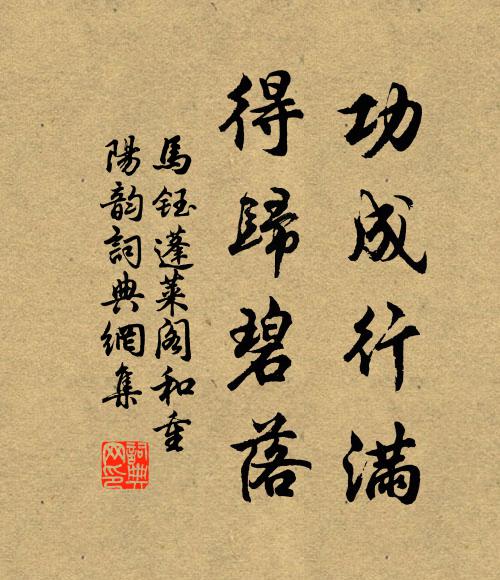 功成行滿
得歸碧落
馬鈺蓬萊閣和重
陽韵詞典網集
詞典
网印